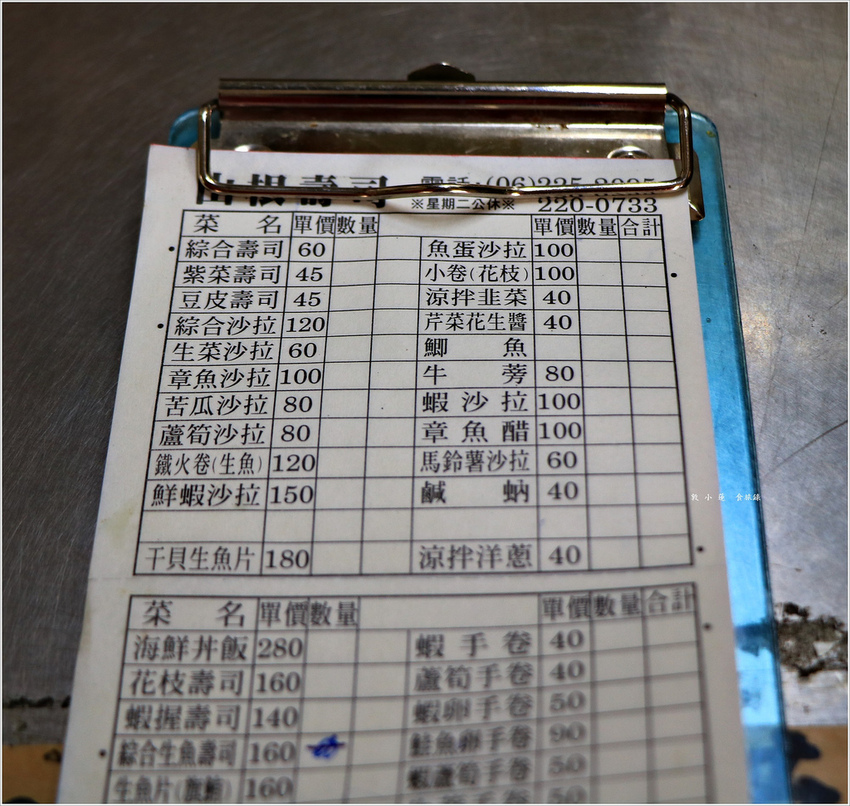 山根壽司 電話:(06)225-
※星期二公休※ 220-0733
菜 名 單價 數量 單價 數量 合計
綜合壽司 60 魚蛋沙拉 100
紫菜壽司 45 小卷(花枝) 100
豆皮壽司 45 涼拌韭菜 40
綜合沙拉 120 芹菜花生醬 40
生菜沙拉 60 鯽 魚
章魚沙拉 100 牛 蒡 80
苦瓜沙拉 80 蝦沙拉 100
蘆筍沙拉 80 章魚醋 100
鐵火卷(生魚) 120 馬鈴薯沙拉 60
鮮蝦沙拉 150 鹹 蚋 40
干貝生魚片 180 涼拌洋蔥 40
菜 名 單價 數量 單價 數量 合計
海鮮丼飯 280 蝦手卷 40
花枝壽司 160 蘆筍手卷 40
蝦握壽司 140 蝦卵手卷 50
綜合生魚壽司 160 鮭魚卵手卷 90
生魚片(旗鮪) 160 蝦蘆筍手卷 50